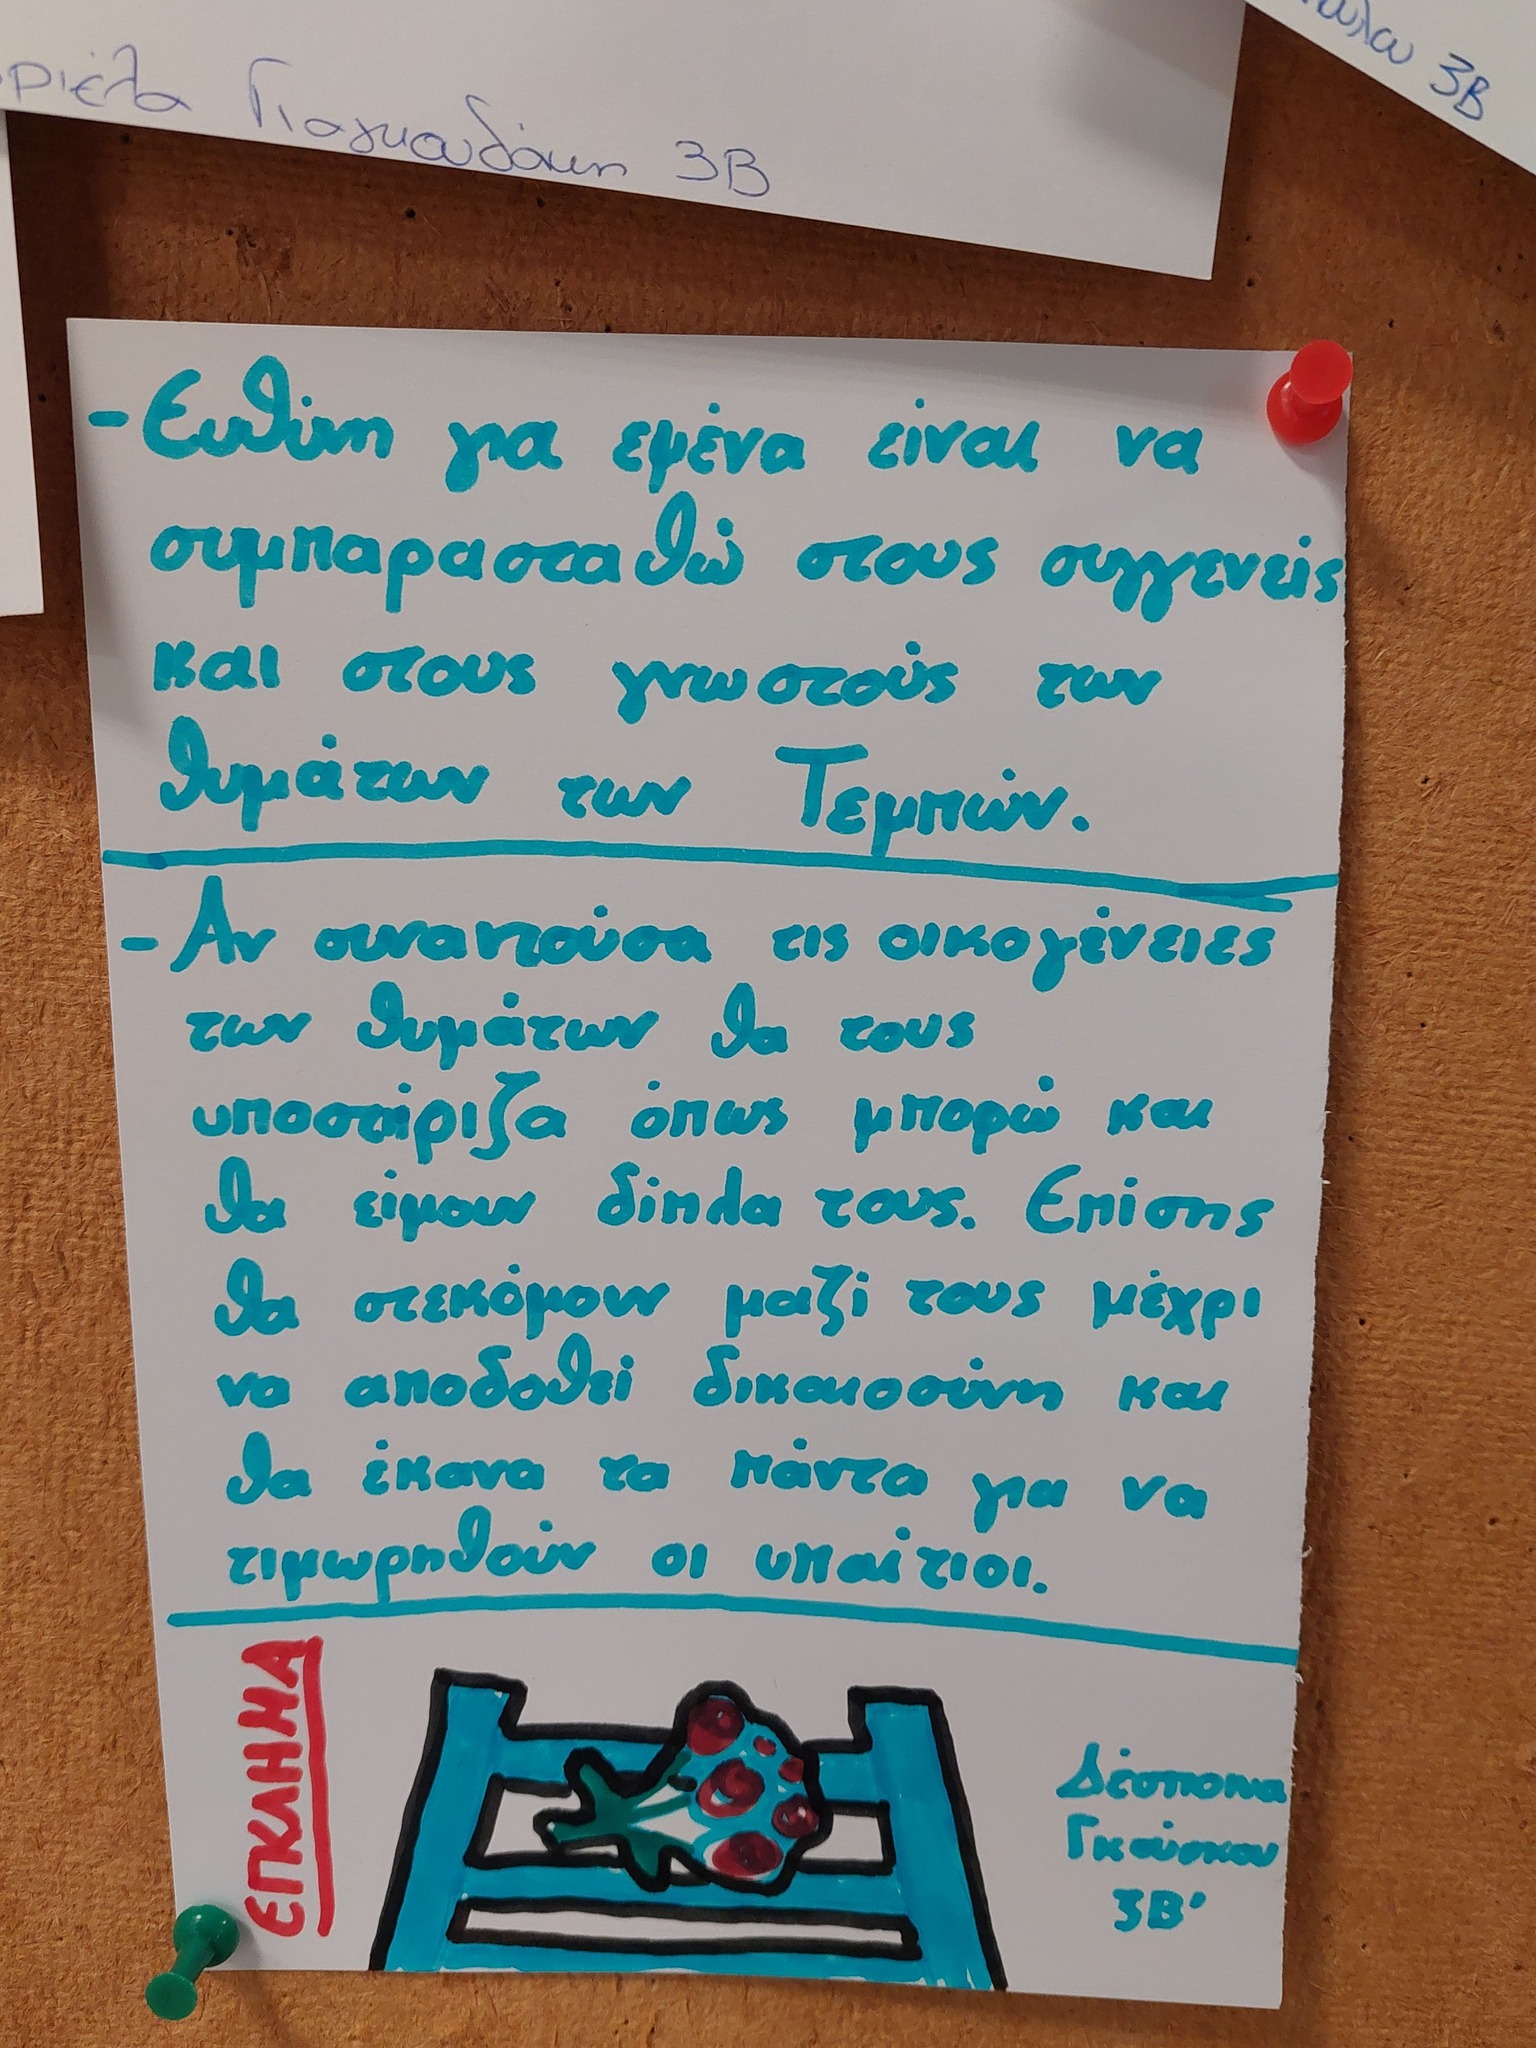 Γιαγκουδάκη 3Β
3Β
- Ευθύνη για εμένα είναι να
συμπαρασταθώ στους συγγενείς
και στους γνωστούς των
θυμάτων των Τεμπών.
- Αν συναντούσα τις οικογένειες
των θυμάτων θα τους
υποστήριζα όπως μπορώ και
θα είμουν δίπλα τους. Επίσης
θα στεκόμουν μαζί τους μέχρι
να αποδοθεί δικαιοσύνη και
θα έκανα τα πάντα για να
τιμωρηθούν οι υπαίτιοι.
ΕΓΚΛΗΜΑ
Δέσποινα
Γκούσκου
3Β'